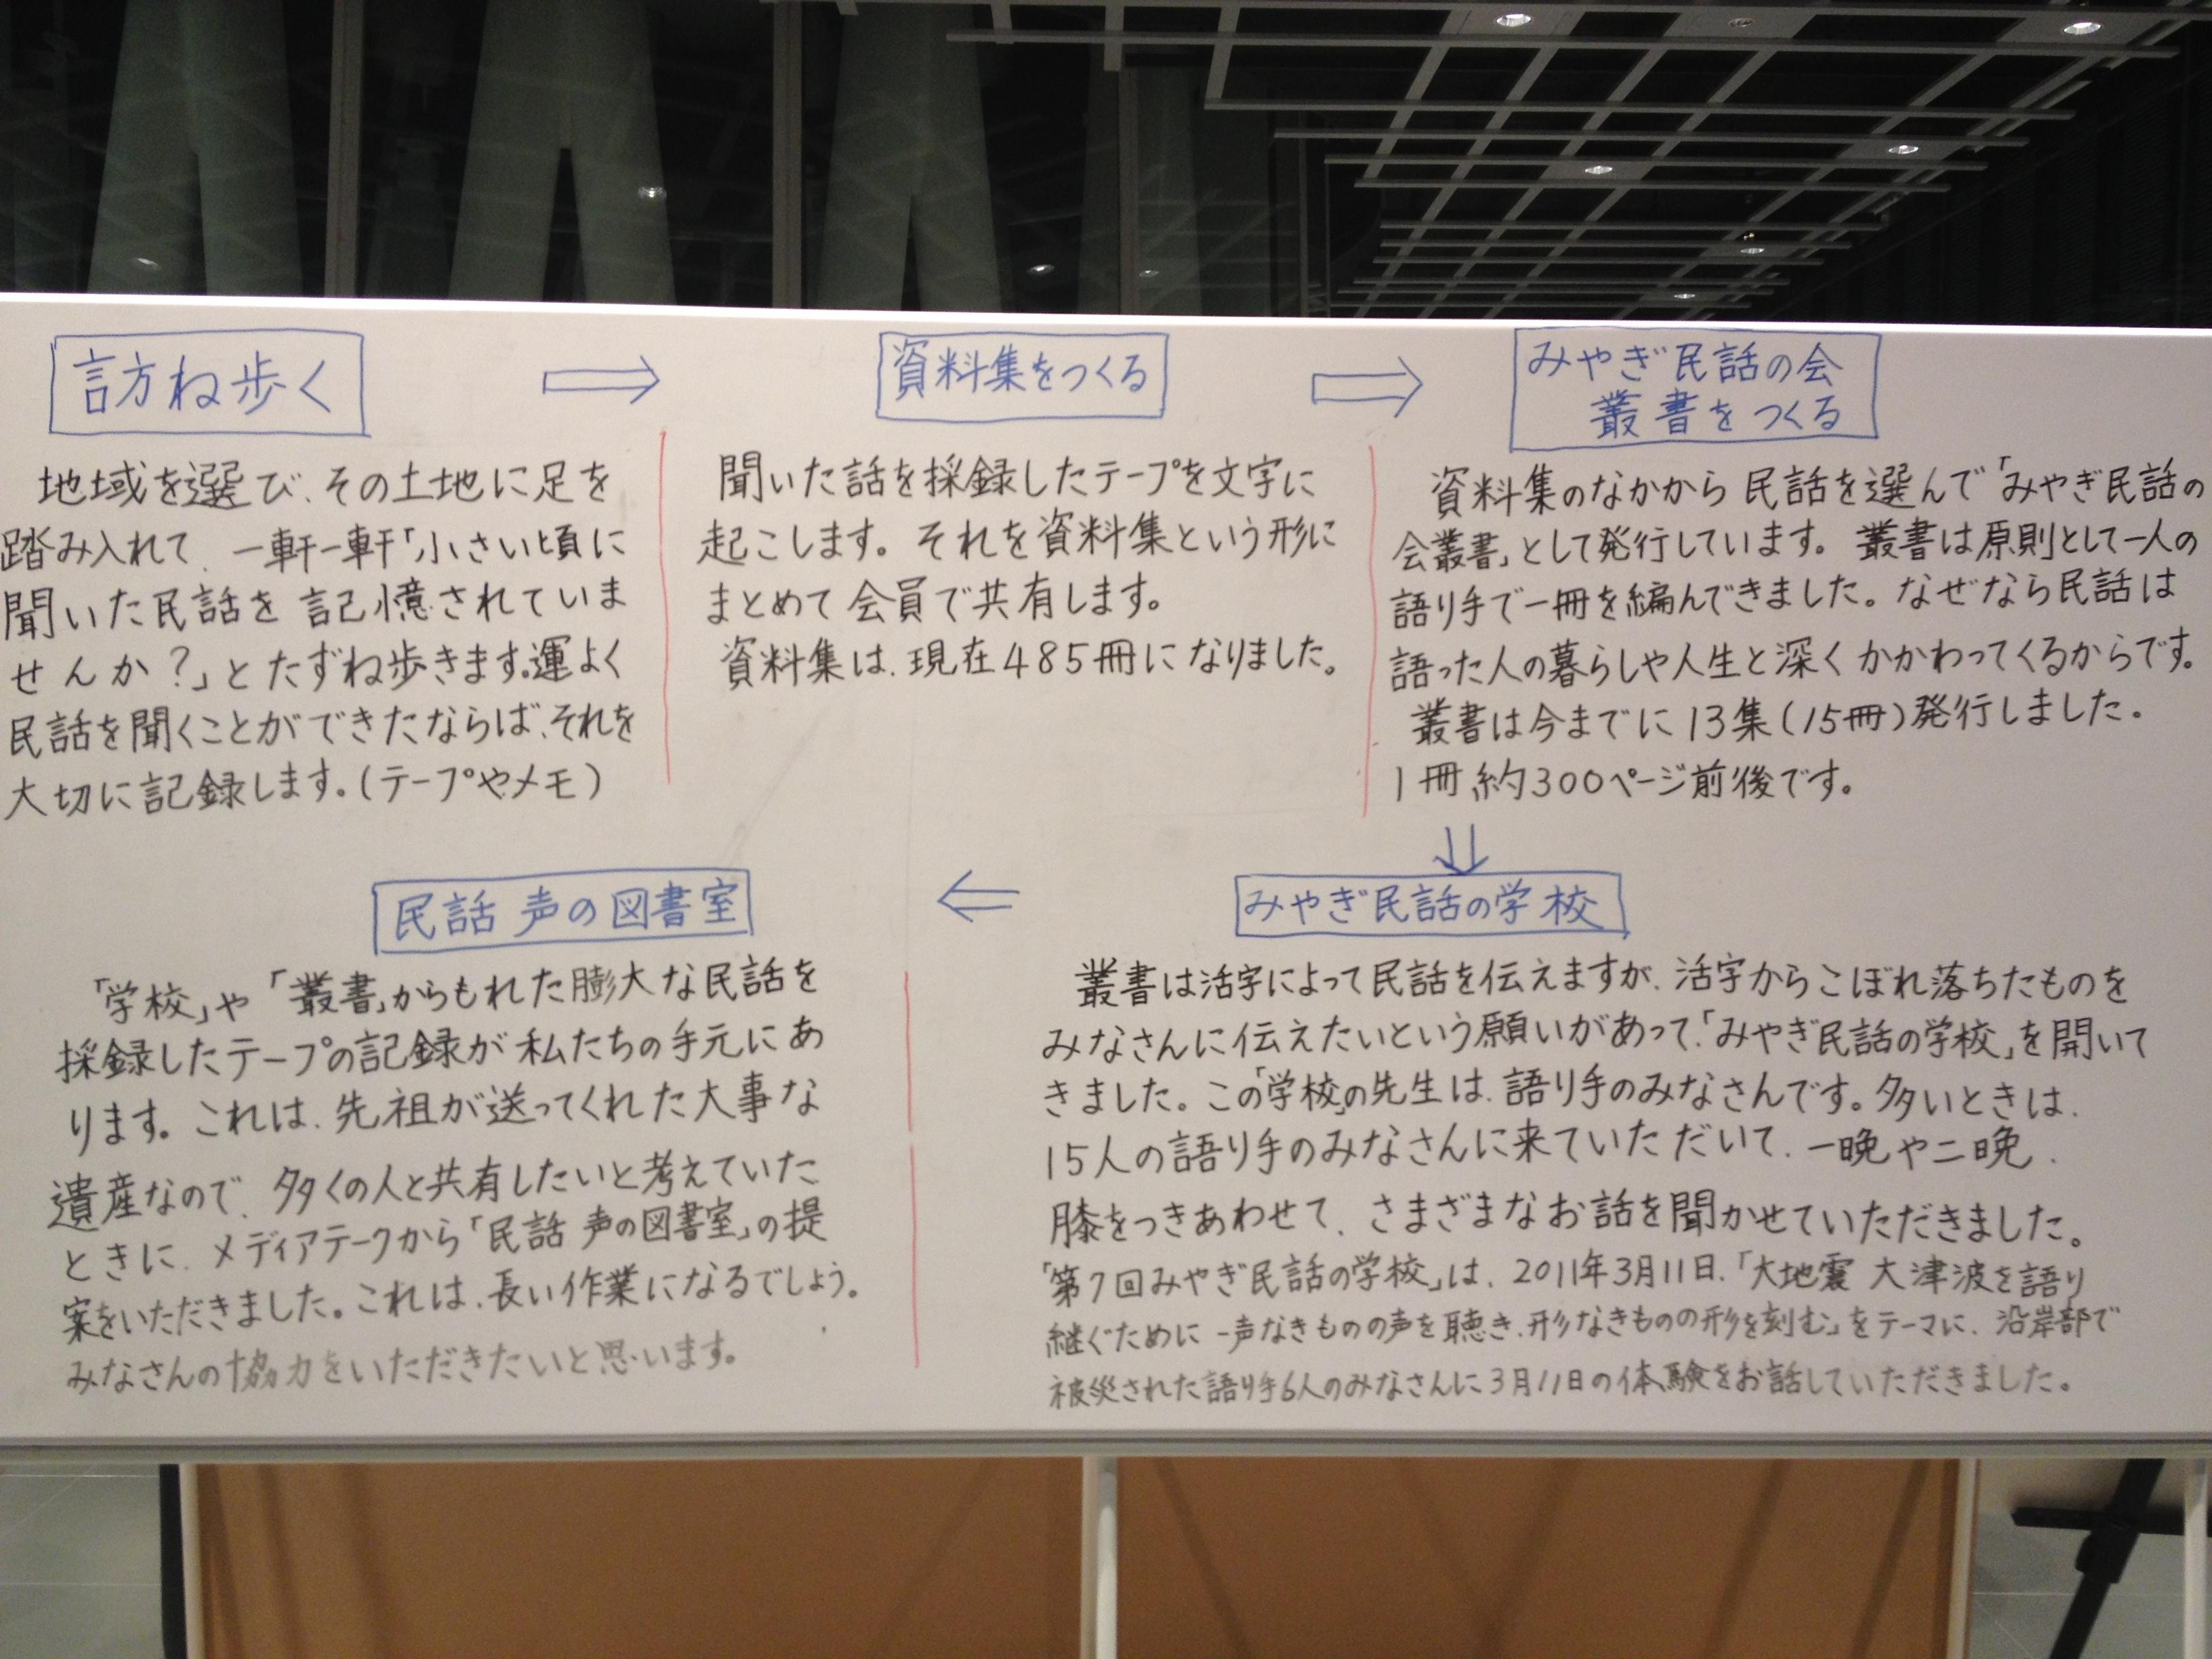 訪ね歩く
地域を選び、その土地に足を
踏み入れて、一軒一軒「小さい頃に
聞いた民話を記憶されていま
せんか?」とたずね歩きます。運よく
民話を聞くことができたならば、それを
大切に記録します。(テープやメモ)
資料集をつくる
聞いた話を採録したテープを文字に
起こします。それを資料集という形に
まとめて会員で共有します。
資料集は、現在485冊になりました。
みやぎ民話の会
叢書をつくる
資料集のなかから民話を選んで「みやぎ民話の
会叢書」として発行しています。叢書は原則として一人の
語り手で一冊を編んできました。なぜなら民話は
語った人の暮らしや人生と深くかかわってくるからです。
叢書は今までに13集(15冊)発行しました.
1冊約300ページ前後です。
みやぎ民話の学校
叢書は活字によって民話を伝えますが、活字からこぼれ落ちたものを
みなさんに伝えたいという願いがあって、「みやぎ民話の学校」を開いて
きました。この「学校」の先生は、語り手のみなさんです。多いときは、
15人の語り手のみなさんに来ていただいて、一晩や二晩、
膝をつきあわせて、さまざまなお話を聞かせていただきました。
「第7回みやぎ民話の学校」は、2011年3月11日、「大地震 大津波を語り
継ぐために -声なきものの声を聴き、形なきものの形を刻む」をテーマに、沿岸部で
被災された語り手6人のみなさんに3月11日の体験をお話していただきました。
民話 声の図書室
「学校」や「叢書」からもれた膨大な民話を
採録したテープの記録が私たちの手元にあ
ります。これは、先祖が送ってくれた大事な
遺産なので、多くの人と共有したいと考えていた
ときに、メディアテークから「民話 声の図書室」の提
案をいただきました。これは、長い作業になるでしょう。
みなさんの協力をいただきたいと思います。